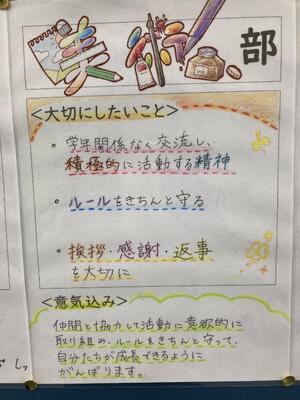 美術部
<大切にしたいこと>
・学年関係なく交流し、
積極的に活動する精神
・ルールをきちんと守る
・挨拶・感謝・返事
を大切に
<意気込み>
仲間と協力して活動に意欲的に
取り組み、ルールをきちんと守って、
自分たちが成長できるように
がんばります。